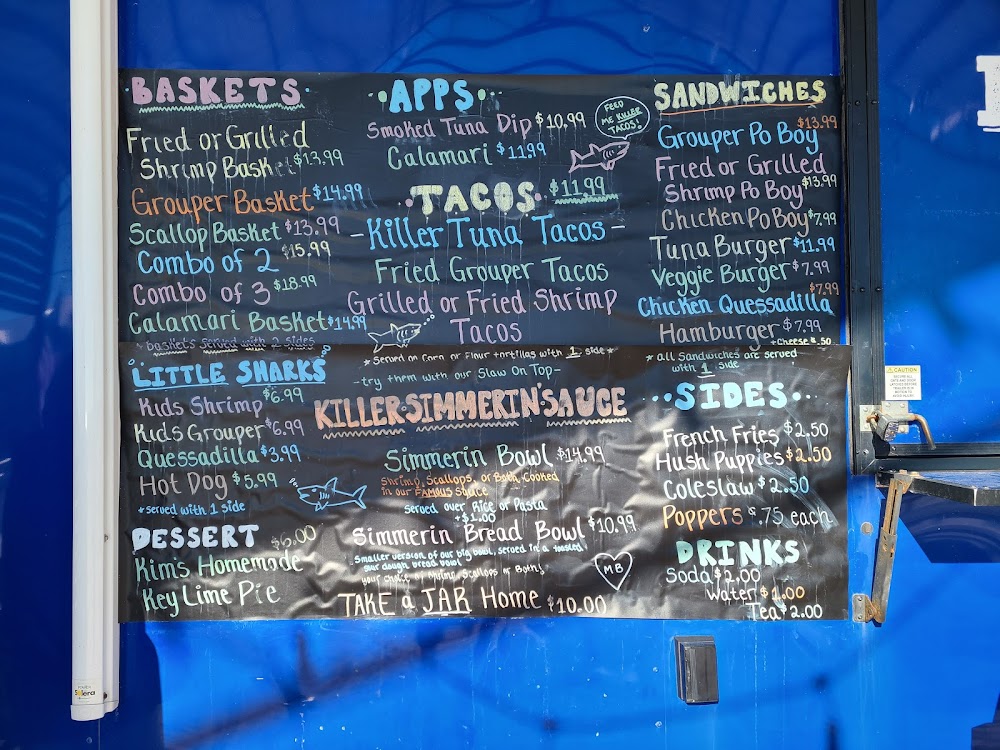 BASKETS
Fried or Grilled
Shrimp Basket $13.99
Grouper Basket $14.99
Scallop Basket $13.99
Combo of 2 $15.99
Combo of 3 $18.99
Calamari Basket $14.99
* baskets served with 2 sides
LITTLE SHARKS
Kids Shrimp $6.99
Kids Grouper $6.99
Quessadilla $3.99
Hot Dog $5.99
*served with 1 side
DESSERT $6.00
Kim's Homemade
Key Lime Pie
APPS
Smoked Tuna Dip $10.99
Calamari $11.99
FEED
ME KILLER
TACOS!
TACOS $11.99
-Killer Tuna Tacos-
Fried Grouper Tacos
Grilled or Fried Shrimp
Tacos
* Served on Corn or Flour tortillas with 1 side *
-try them with our Slaw On Top-
KILLER SIMMERIN' SAUCE
Simmerin Bowl $14.99
Shrimp, Scallops, or Both, Cooked
in our FAMOUS sauce
served over Rice or Pasta
+$1.00
Simmerin Bread Bowl $10.99
Smaller version of our big bowl, served in a toasted
sour dough bread bowl
your choice of Shrimp, Scallops or Both!
MB
TAKE a JAR Home $10.00
SANDWICHES
Grouper Po Boy $13.99
Fried or Grilled
Shrimp Po Boy $13.99
Chicken Po Boy $7.99
Tuna Burger $11.99
Veggie Burger $7.99
Chicken Quessadilla $7.99
Hamburger $7.99
+Cheese $.50
* all Sandwiches are served
with 1 side
SIDES
French Fries $2.50
Hush Puppies $2.50
Coleslaw $2.50
Poppers $.75 each
DRINKS
Soda $2.00
Water $1.00
Tea $2.00
CAUTION
Solera